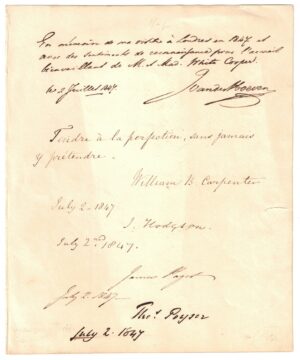 En mémoire de ma visite à Londres en 1847 et
avec des sentiments de reconnaissance pour l'accueil
bienveillant de M. et Mad. White Cooper.
ce 2 Juillet 1847
J vander Hoeven
Tendre à la perfection, sans jamais
y prétendre.
William B. Carpenter
July 2. 1847
J. Hodgson.
July 2nd 1847.
James Paget
July 2. 1847.
Thos. Poyser
July 2. 1847